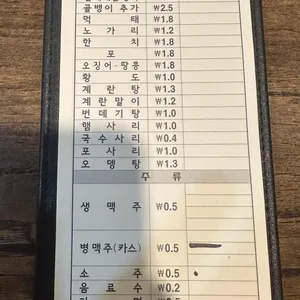 골뱅이 추가 ₩2.5
먹 태 ₩1.8
노 가 리 ₩1.2
한 치 ₩1.8
포 ₩1.8
오징어·땅콩 ₩1.8
황 도 ₩1.0
계 란 탕 ₩1.3
계 란 말 이 ₩1.2
번 데 기 탕 ₩1.0
햄 사 리 ₩1.0
국 수 사 리 ₩0.4
포 사 리 ₩1.0
오 뎅 탕 ₩1.3
주 류
생 맥 주 ₩0.5
병맥주(카스) ₩0.5
소 주 ₩0.5
음 료 수 ₩0.2